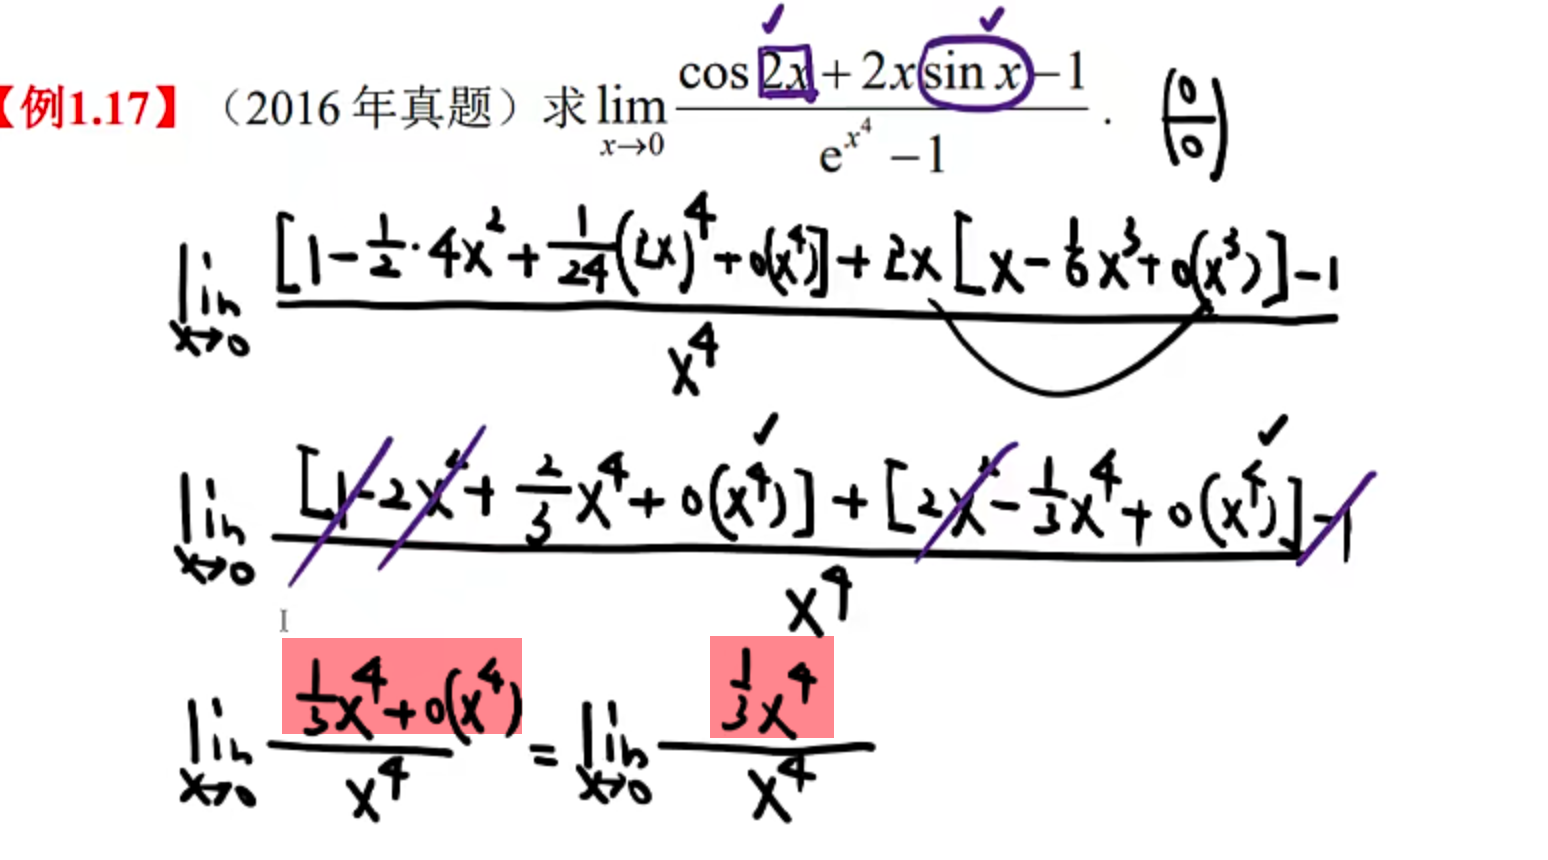 【例1.17】（2016 年真题）求 lim_{x→0} \frac{cos 2x + 2x sin x − 1}{e^{x^4} − 1} . (\frac{0}{0})
lim_{x→0} \frac{[1 − \frac{1}{2}·4x^2 + \frac{1}{24}(2x)^4 + o(x^4)] + 2x[x − \frac{1}{6}x^3 + o(x^3)] − 1}{x^4}
lim_{x→0} \frac{[1 − 2x^2 + \frac{2}{3}x^4 + o(x^4)] + [2x^2 − \frac{1}{3}x^4 + o(x^4)] − 1}{x^4}
lim_{x→0} \frac{\frac{1}{3}x^4 + o(x^4)}{x^4} = lim_{x→0} \frac{\frac{1}{3}x^4}{x^4}